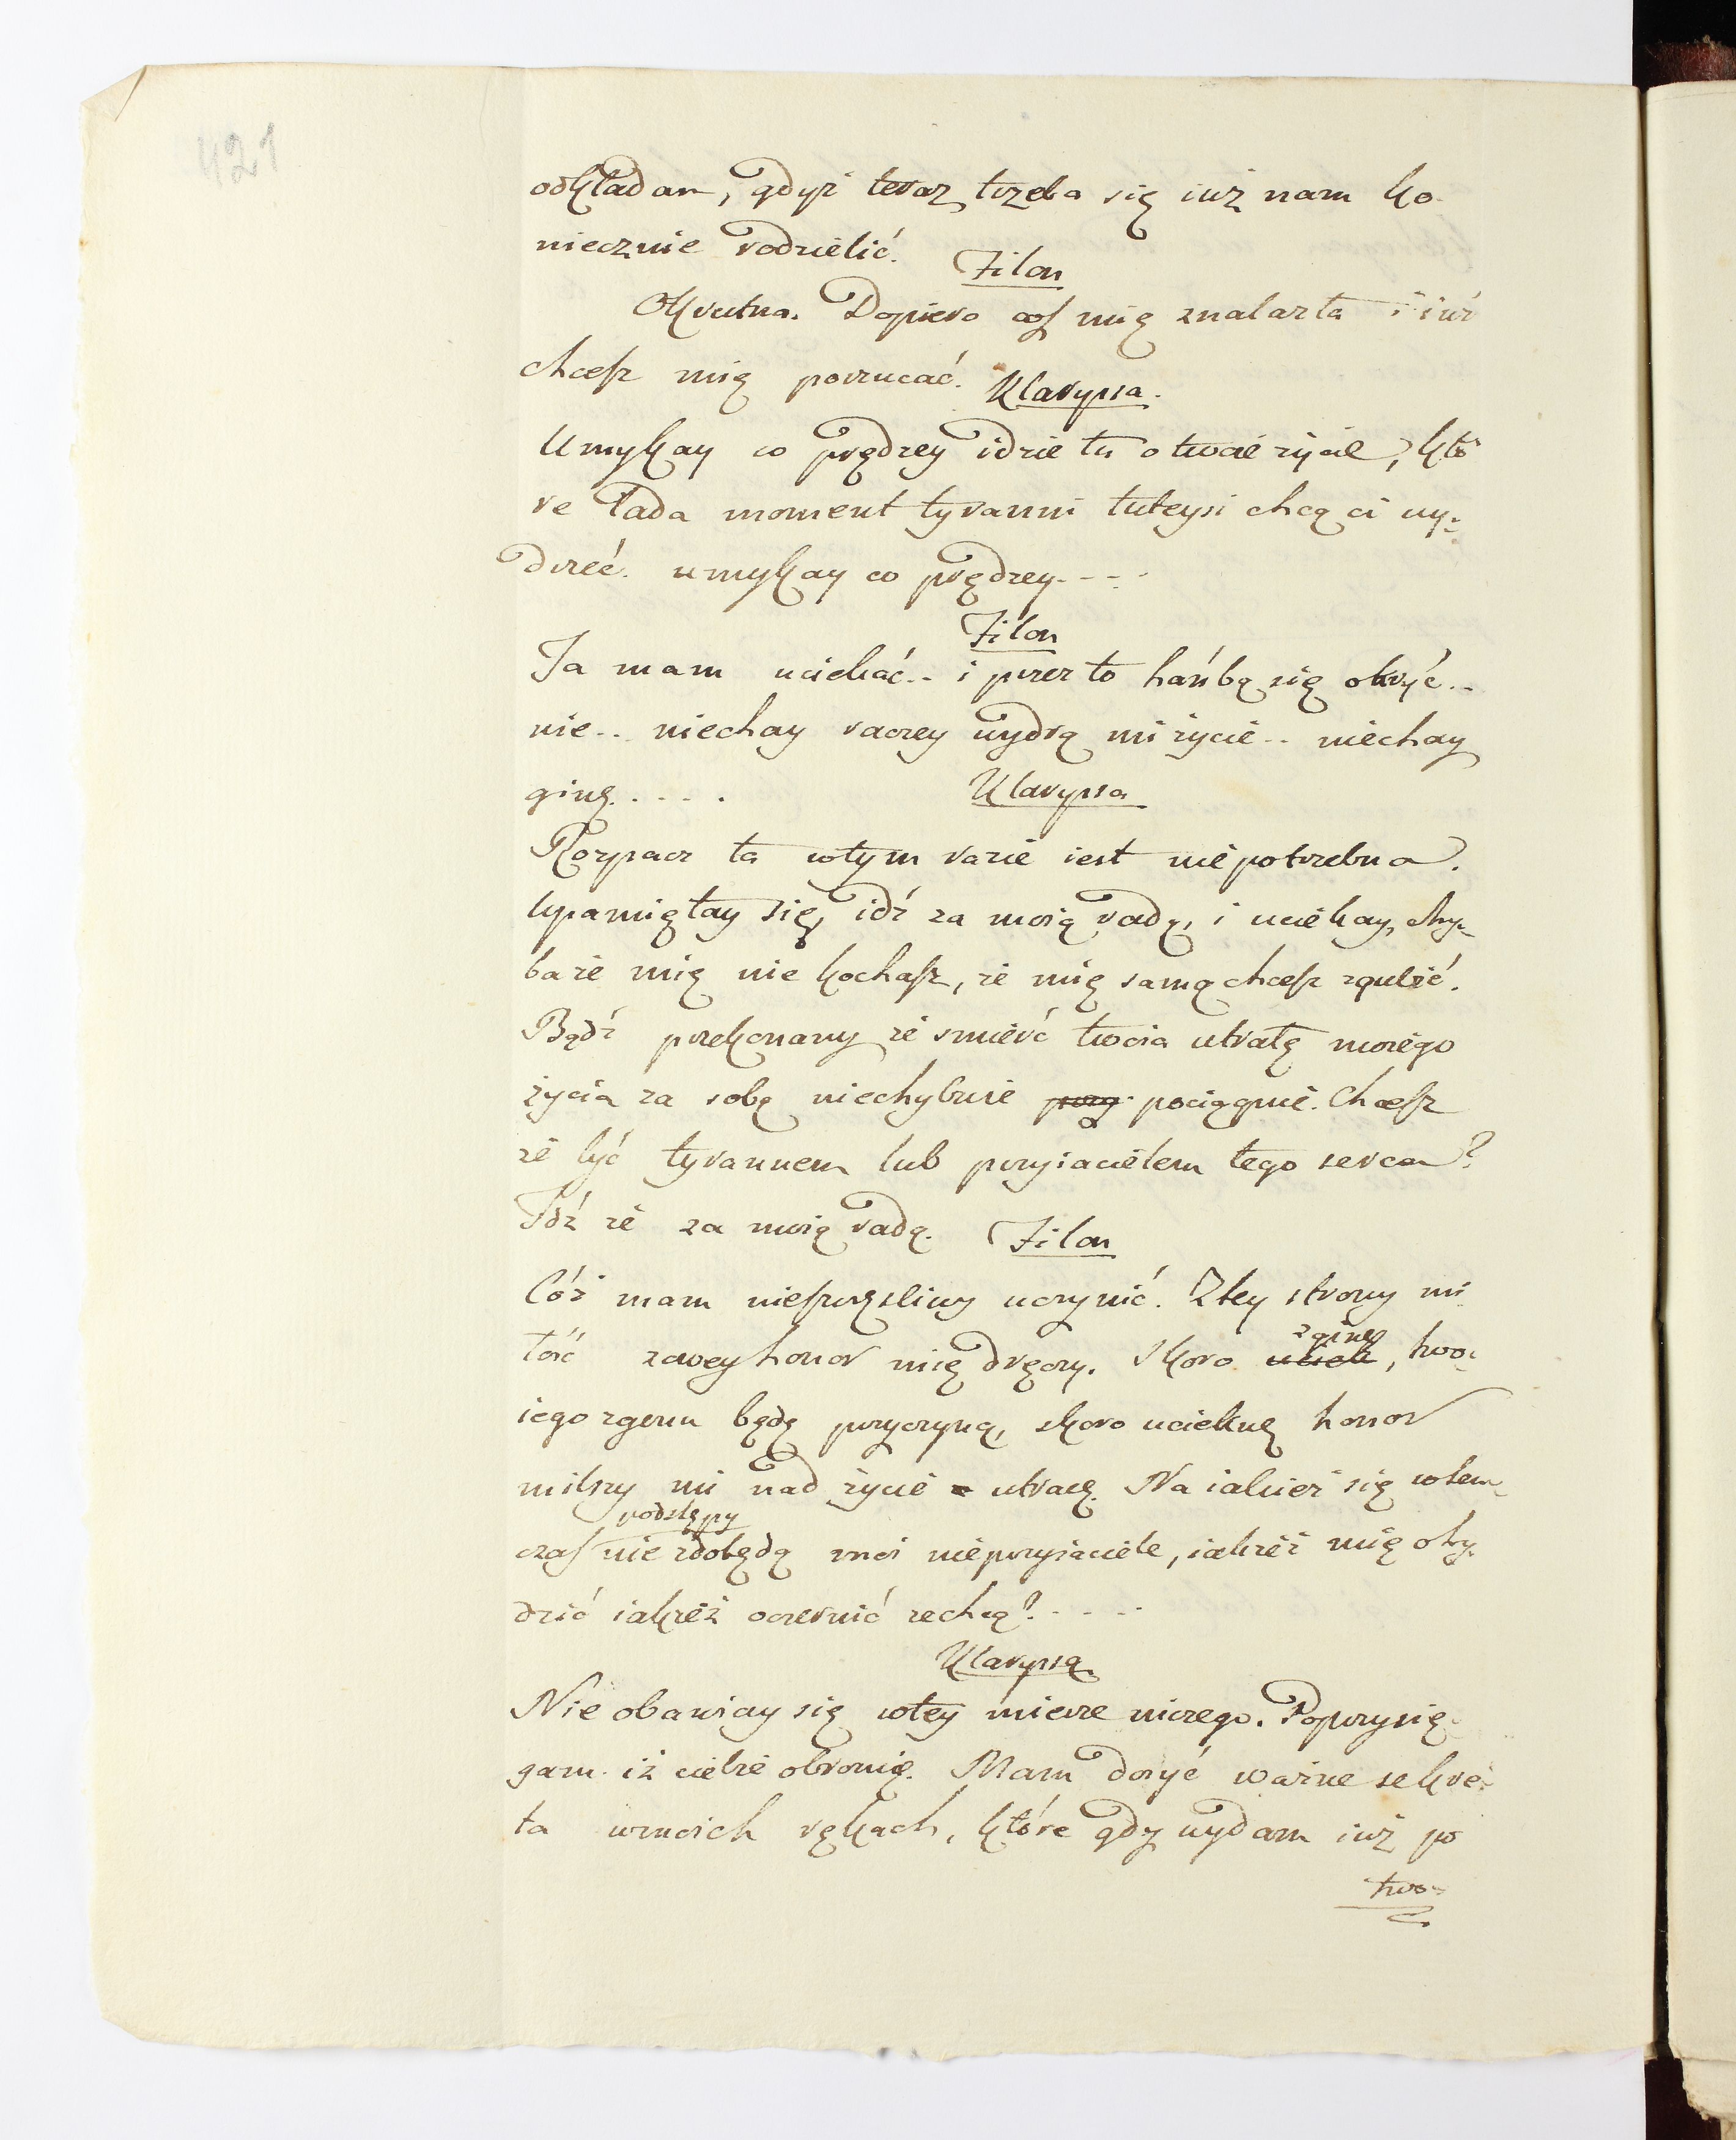 421
odkładam, gdyż teraz trzeba się iuż nam ko
niecznie rodzielić.
Filon
Okrutna. Dopiero coś mię znalazła i iuż
chcesz mię porzucać.
Klaryssa.
Umykay co prędzey idzie tu o twoie życie, któ
re lada moment tyranni tuteysi chcą ci wy-
drzeć. umykay co prędzey----
Filon
Ja mam uciekać.. i przez to hańbą się okryć..
nie.. niechay raczey wydrą mi życie.. niechay
ginę. . . . .
Klaryssa
Rozpacz ta wtym razie iest niepotrzebna.
Upamiętay się, idź za moią radą, i uciekay, chy-
ba że mię nie kochasz, że mię samą chcesz zgubić.
Bądź przekonany że śmierć twoia utratę moiego
życia za sobą niechybnie pociągnie. Chcesz
że być tyrannem lub przyiacielem tego serca?
Idź że za moią radą.
Filon
Cóż mam nieszczęśliwy uczynić. Ztey strony mi
łość zowey honor mię dręczy. Skoro zginę
ucieke, two-
iego zgonu będę przyczyną, skoro ucieknę honor
milszy mi nad życie utracę. Na iakież się wtem
podstępy
czas nie zdobędą moi nieprzyiaciele, iakże mię ohy-
dzić iakżeż oczernić zechcą?. - - - -
Klaryssa
Nie obawiay się wtey mierze niczego. Poprzysię-
gam iż ciebie obronię. Mam dosyć ważne sekre-
ta wmoich rękach, które gdy wydam iuż po
two-